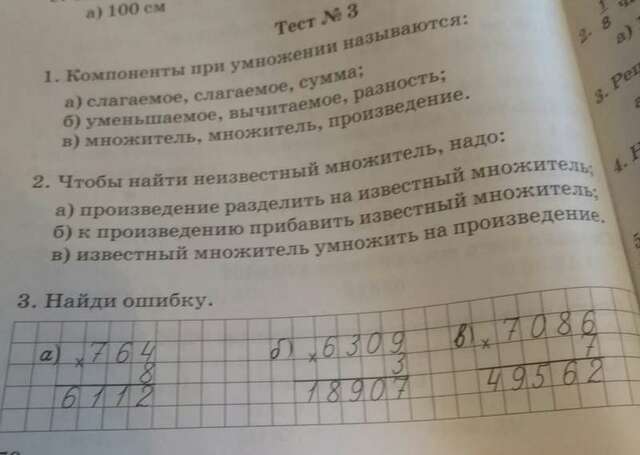 а) 100 см
Тест № 3
1. Компоненты при умножении называются:
а) слагаемое, слагаемое, сумма;
б) уменьшаемое, вычитаемое, разность;
в) множитель, множитель, произведение.
2. Чтобы найти неизвестный множитель, надо:
а) произведение разделить на известный множитель;
б) к произведению прибавить известный множитель;
в) известный множитель умножить на произведение.
3. Найди ошибку.
а) × 764 б) × 6309 в) × 7086
8 3 7
6112 18907 49562
1
2. 8
а)
3. Реш
4. Н
5